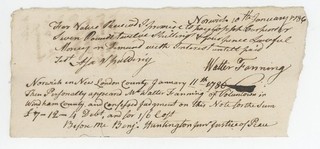 Norwich 10th January 1786
For Value Received I promise to pay Joseph Carpenter
Seven Pounds twelve Shillings & four pence Lawful
Money on Demand with Interest until paid
Test
Walter Fanning
Norwich in New London County January 11th 1786
Then Personally appeared Mr Walter Fanning of Voluntown in
Windham County and confessed Judgment on this Note for the Sum
£7-12-4 Debt, and for 1/6 Cost
Before me Benj. Huntington Junr Justice of Peace